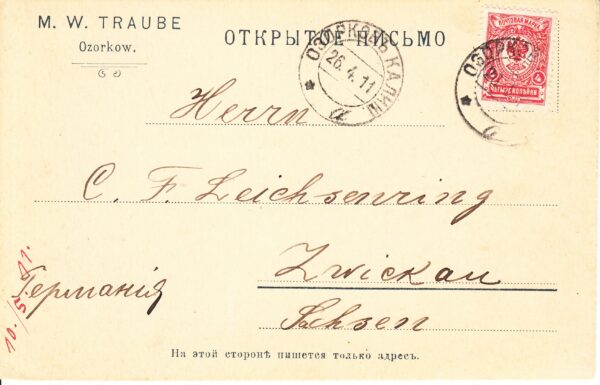 M. W. TRAUBE
Ozorkow.
ОТКРЫТОЕ ПИСЬМО
ОЗОРКОВЪ КАЛИШ
26.4.11
а
ПОЧТОВАЯ МАРКА
4
ЧЕТЫРЕ КОПѢЙКИ
Herrn
C. F. Leichsenring
Zwickau
Германія
Sachsen
10./5. 11.
На этой сторонѣ пишется только адресъ.